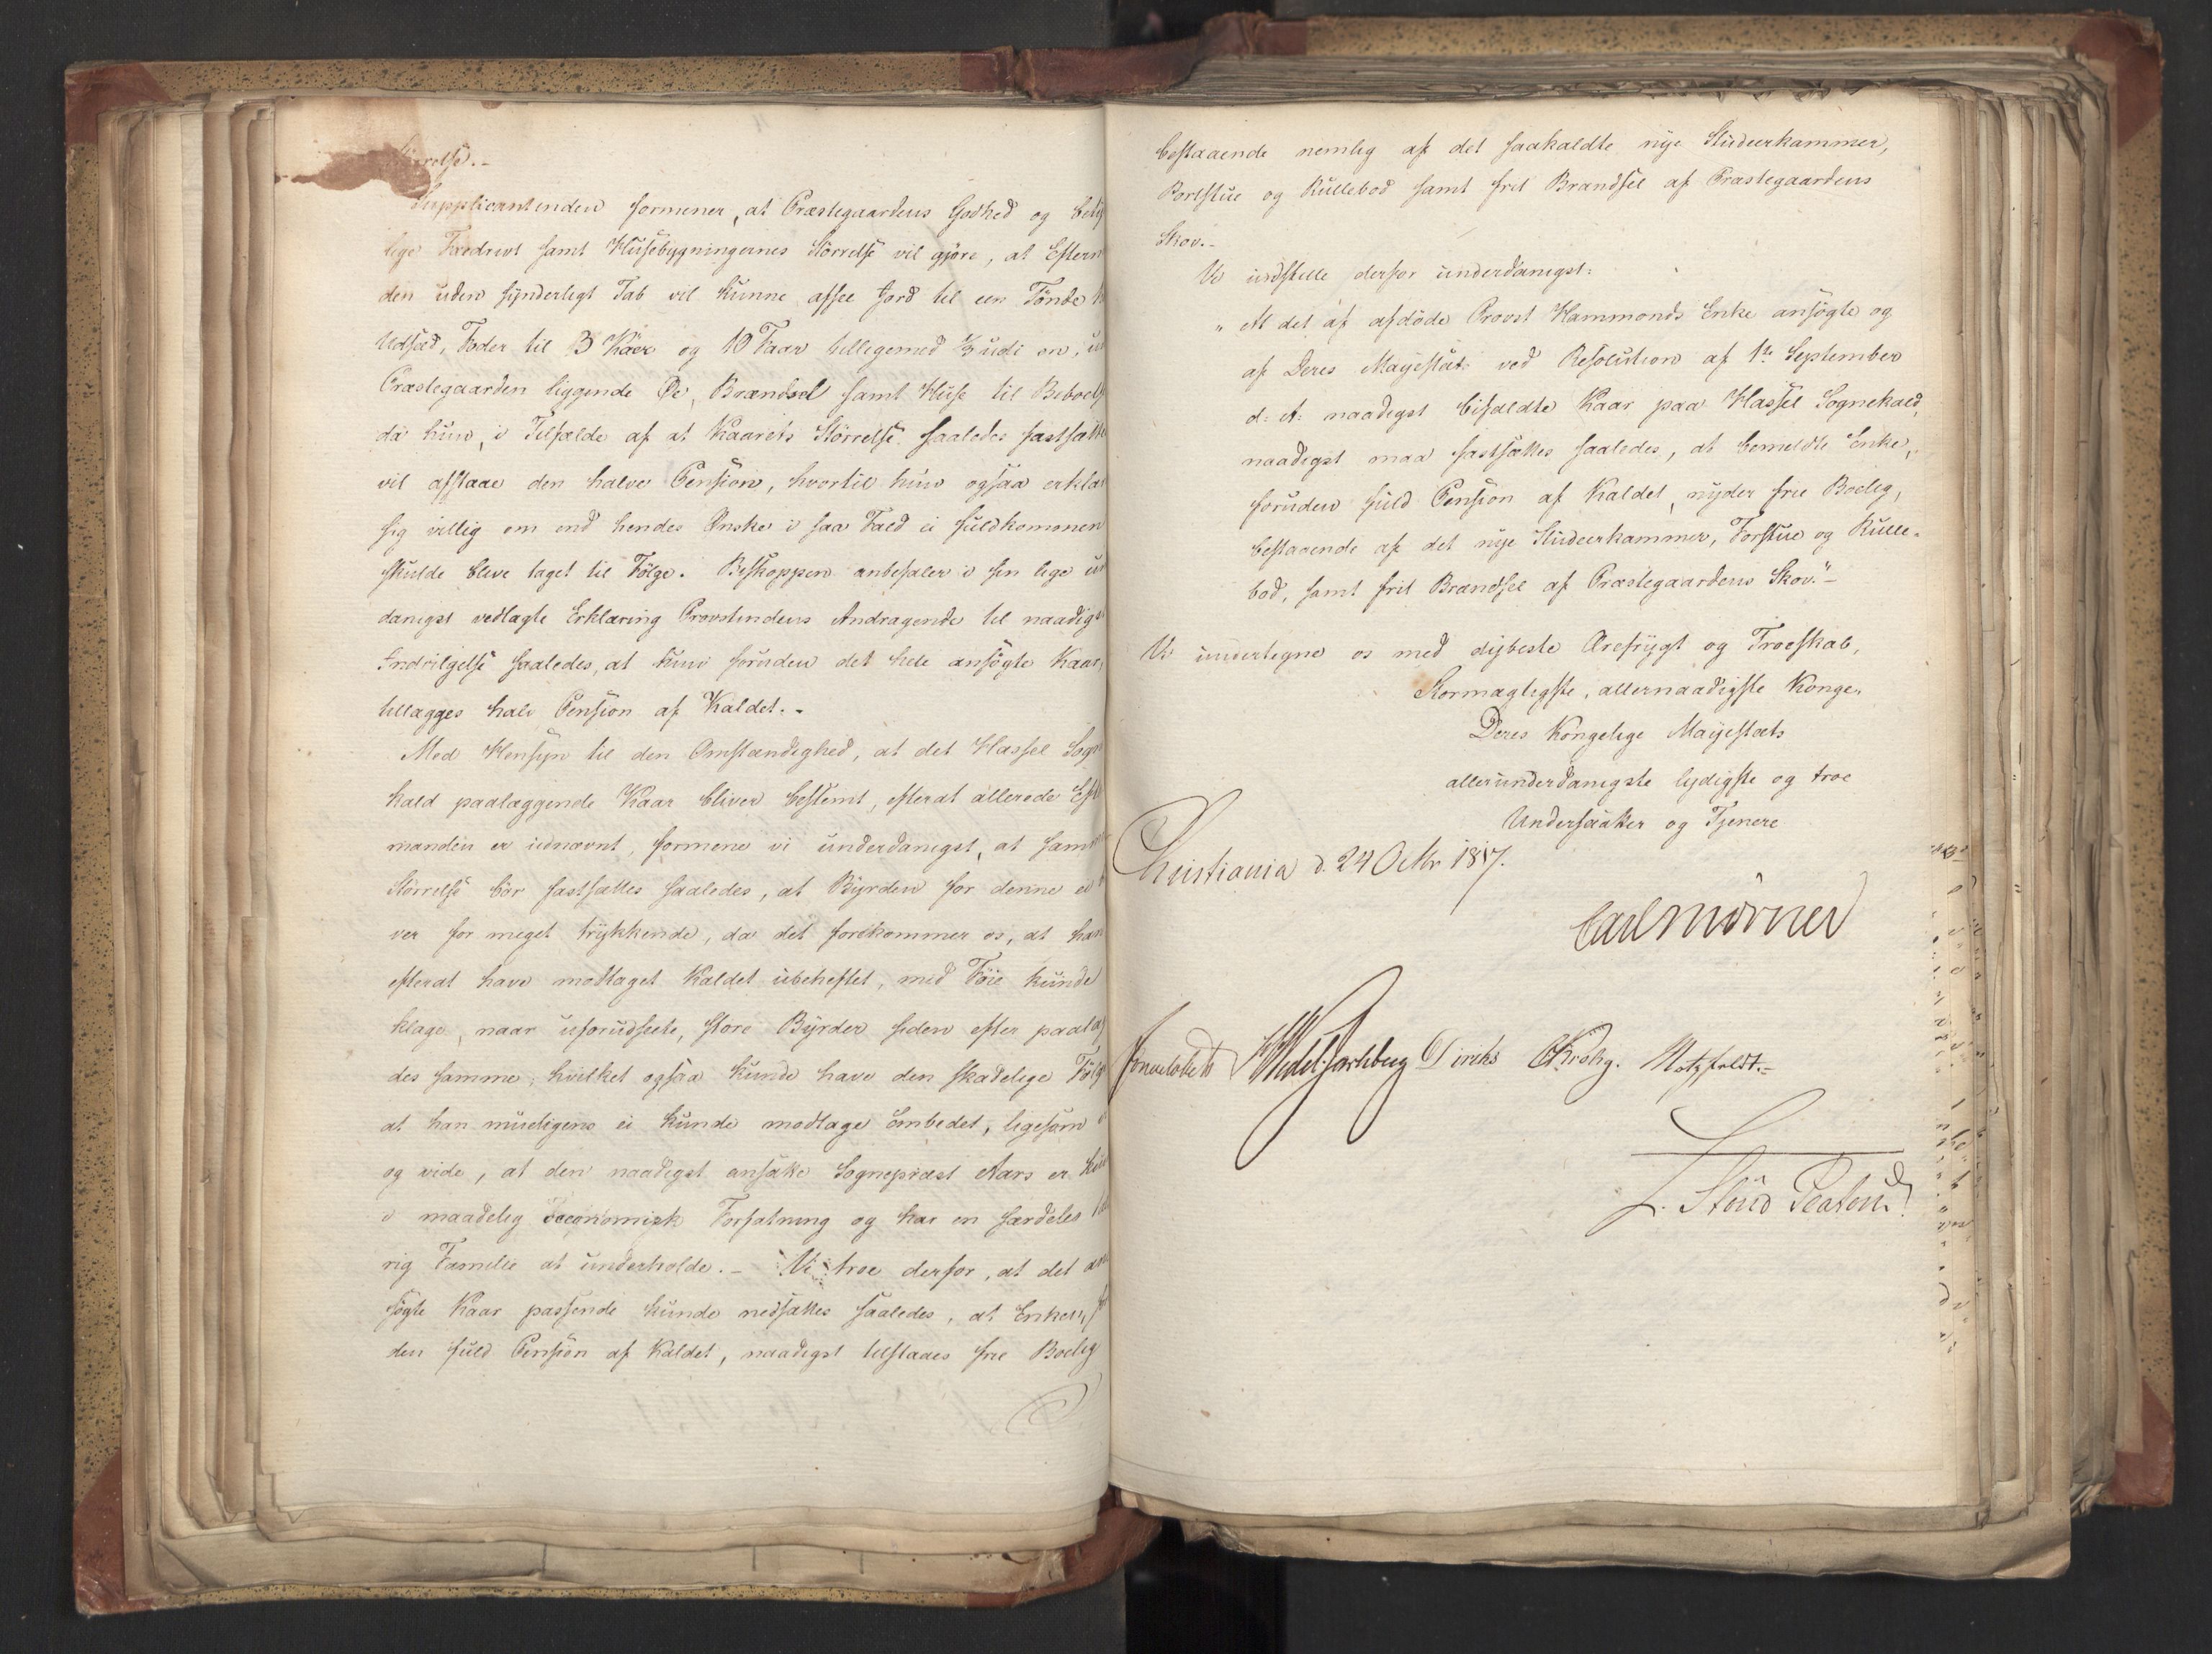 Størrelse.-
Supplicantinden formener, at Præstegaardens Godhed og bety
lige Fædrivt samt Huusebygningernes Størrelse vil gjøre, at Efterm
den uden synderligt Tab vil kunne afsee Jord til een Tønde
Udsæd, Foder til 3 Kiøer og 10 Faar tilligemed Z udi en, ud
Præstegaarden liggende Øe, Brændsel samt Huse til Beboels
da hun, i Tilfælde af at Kaarets Størrelse saaledes fastsætte
vil afstaae den halve Pension, hvortil hun ogsaa erklæ
sig villig om end hendes Ønske i saa Fald ei fuldkommen
skulde blive taget til Følge. Biskoppen anbefaler i sin lige un
danigst vedlagte Erklæring Provstindens Andragende til naadigs
Indvilgelse saaledes, at hun foruden det hele ansøgte Kaar,
tillægges halv Pension af Kaldet.-
Med Hensyn til den Omstændighed, at det Hassel Sogn
kald paalæggende Kaar bliver bestemt, efterat allerede Eft
manden er udnævnt, formene vi underdanigst, at samm
Størrelse bør fastsættes saaledes, at Byrden for denne ei
ver for meget trykkende, da det forekommer os, at han
efterat have modtaget Kaldet ubeheftet, med Føie kunde
klage, naar uforudseete, store Byrder siden efter paala
des samme, hvilket ogsaa kunde have den skadelige Følg
at han mueligens ei kunde modtage Embedet, ligesom
og vide, at den naadigst ansatte Sognepræst Aars er
i maadelig oeconomisk Forfatning og har en særdeles
rig Familie at underholde.- Vi troe derfor, at det an
søgte Kaar passende kunde nedsættes saaledes, at Enken, f
den fuld Pension af Kaldet, naadigst tilstaaes frie Boelig
bestaaende nemlig af det saakaldte nye Studeerkammer,
Borstue og Rullebod samt frit Brændsel af Præstegaardens
Skov.-
Vi indstille derfor underdanigst:
"At det af afdøde Provst Hammonds Enke ansøgte og
af Deres Majestæt ved Resolution af 1ste September
d: A: naadigst bifaldte Kaar paa Hassel Sognekald,
naadigst maa fastsættes saaledes, at bemeldte Enke,
foruden fuld Pension af Kaldet, nyder frie Boelig,
bestaaende af det nye Studeerkammer, Borstue og Rulle-
bod, samt frit Brændsel af Præstegaardens Skov."-
Vi undertegne os med dybeste Ærefrygt og Troeskab,
Stormægtigste, allernaadigste Konge,
Deres Kongelige Majestæts
allerunderdanigste lydigste og troe
Undersaatter og Tjenere
Christiania d. 24 Octbr 1817.
Carl Mörner
Sommerhielm HWedel Jarlsberg Diriks CKrohg. Motzfeldt.-
L. Stoud Platou